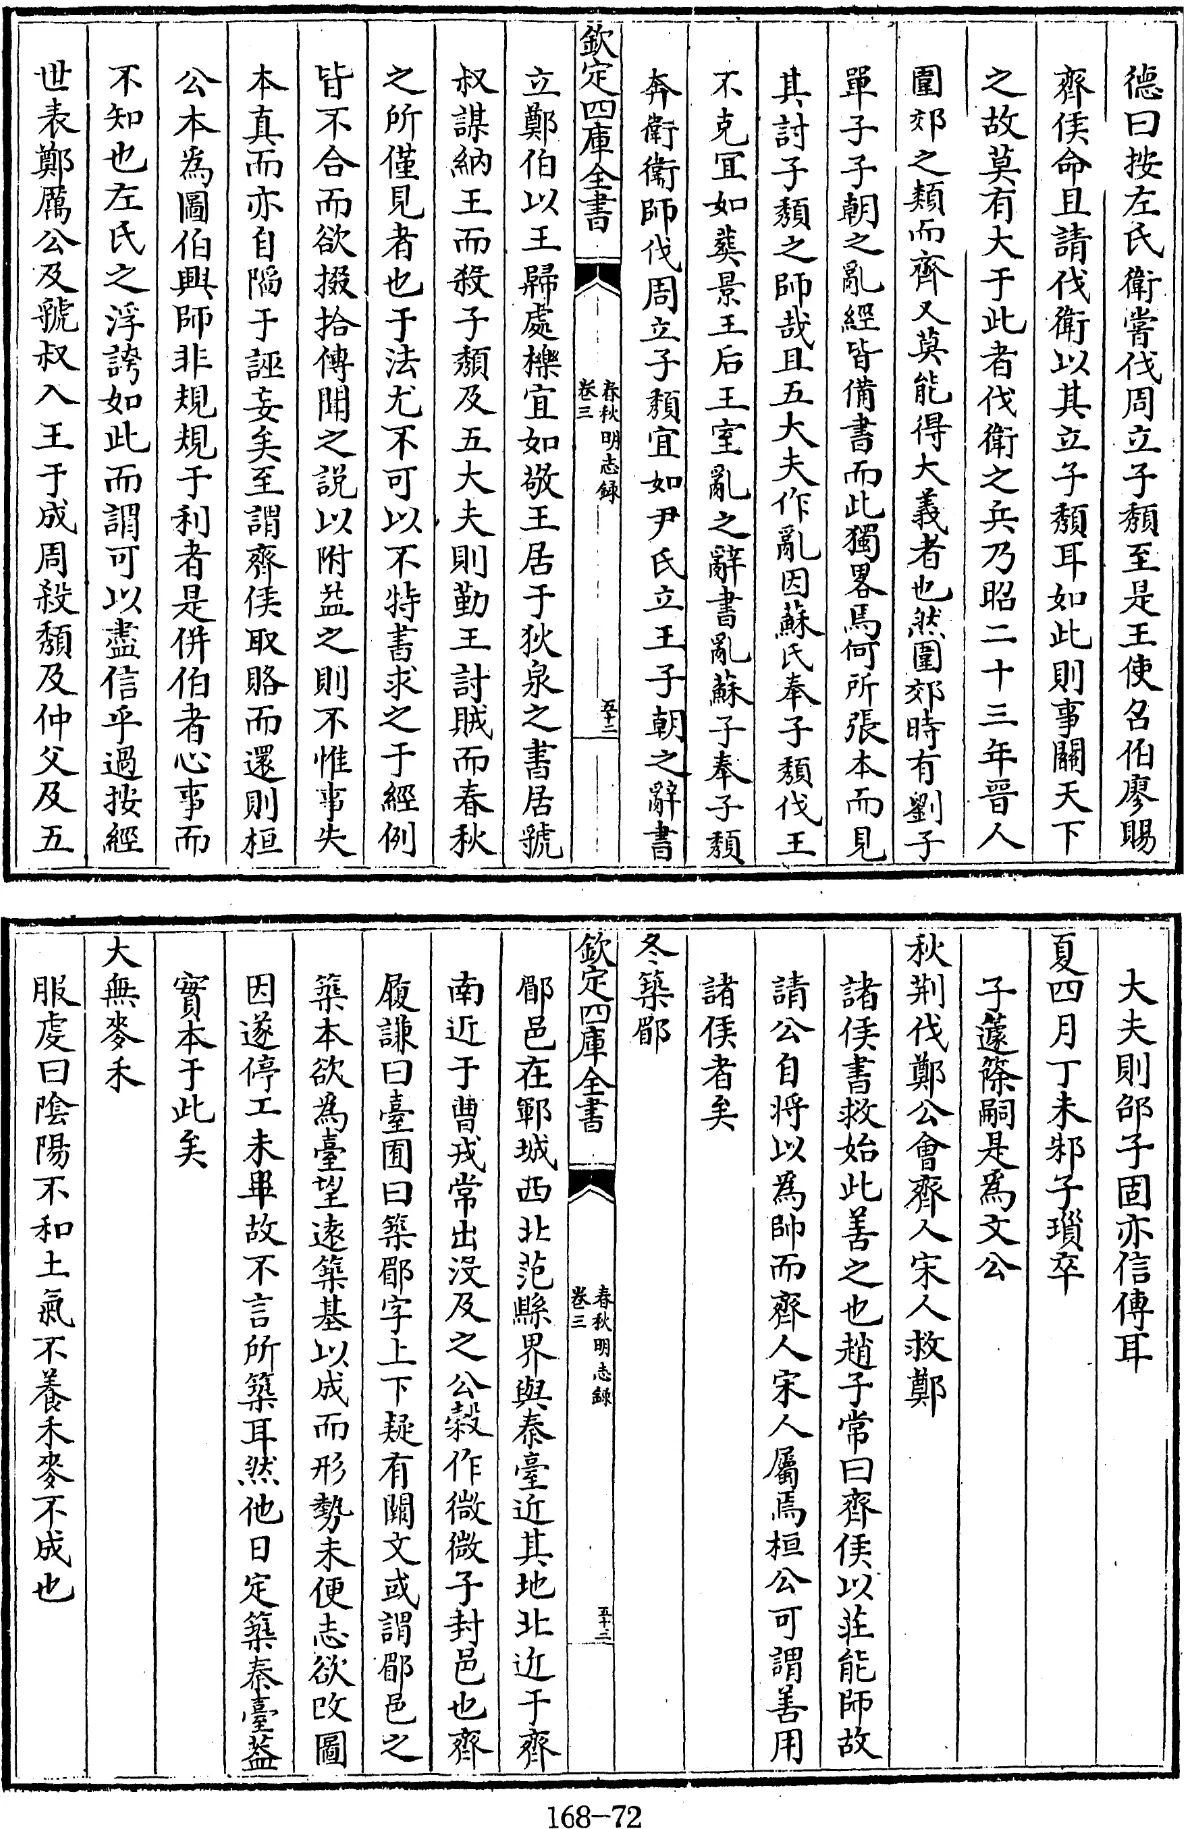 德曰按左氏衛嘗伐周立子頽至是王使召伯廖賜
齊侯命且請伐衛以其立子頽耳如此則事關天下
之故莫有大于此者伐衛之兵乃昭二十三年晉人
圍郊之類而齊又莫能得大義者也然圍郊時有劉子
單子子朝之亂經皆備書而此獨畧焉何所張本而見
其討子頽之師哉且五大夫作亂因蘇氏奉子頽伐王
不克冝如葬景王后王室亂之辭書亂蘇子奉子頽
奔衛衛師伐周立子頽宜如尹氏立王子朝之辭書
欽定四庫全書
春秋明志録
卷三
五十二
立鄭伯以王歸處櫟宜如敬王居于狄泉之書居虢
叔謀納王而殺子頽及五大夫則勤王討賊而春秋
之所僅見者也于法尤不可以不特書求之于經例
皆不合而欲掇拾傳聞之説以附益之則不惟事失
本真而亦自䧟于誣妄矣至謂齊侯取賂而還則桓
公本為圖伯興師非規規于利者是併伯者心事而
不知也左氏之浮誇如此而謂可以盡信乎過按經
世表鄭厲公及虢叔入王于成周殺頽及仲父及五
大夫則邵子固亦信傳耳
夏四月丁未邾子瑣卒
子蘧篨嗣是為文公
秋荆伐鄭公會齊人宋人救鄭
諸侯書救始此善之也趙子常曰齊侯以莊能師故
請公自將以為帥而齊人宋人屬焉桓公可謂善用
諸侯者矣
冬築郿
欽定四庫全書
春秋明志録
卷三
五十三
郿邑在鄆城西北范縣界與秦臺近其地北近于齊
南近于曹戎常出没及之公榖作微微子封邑也齊
履謙曰臺囿曰築郿字上下疑有闕文或謂郿邑之
築本欲為臺望逺築基以成而形勢未便志欲改圖
因遂停工未畢故不言所築耳然他日定築秦臺葢
實本于此矣
大無麥禾
服虔曰隂陽不和土氣不養禾麥不成也
168-72